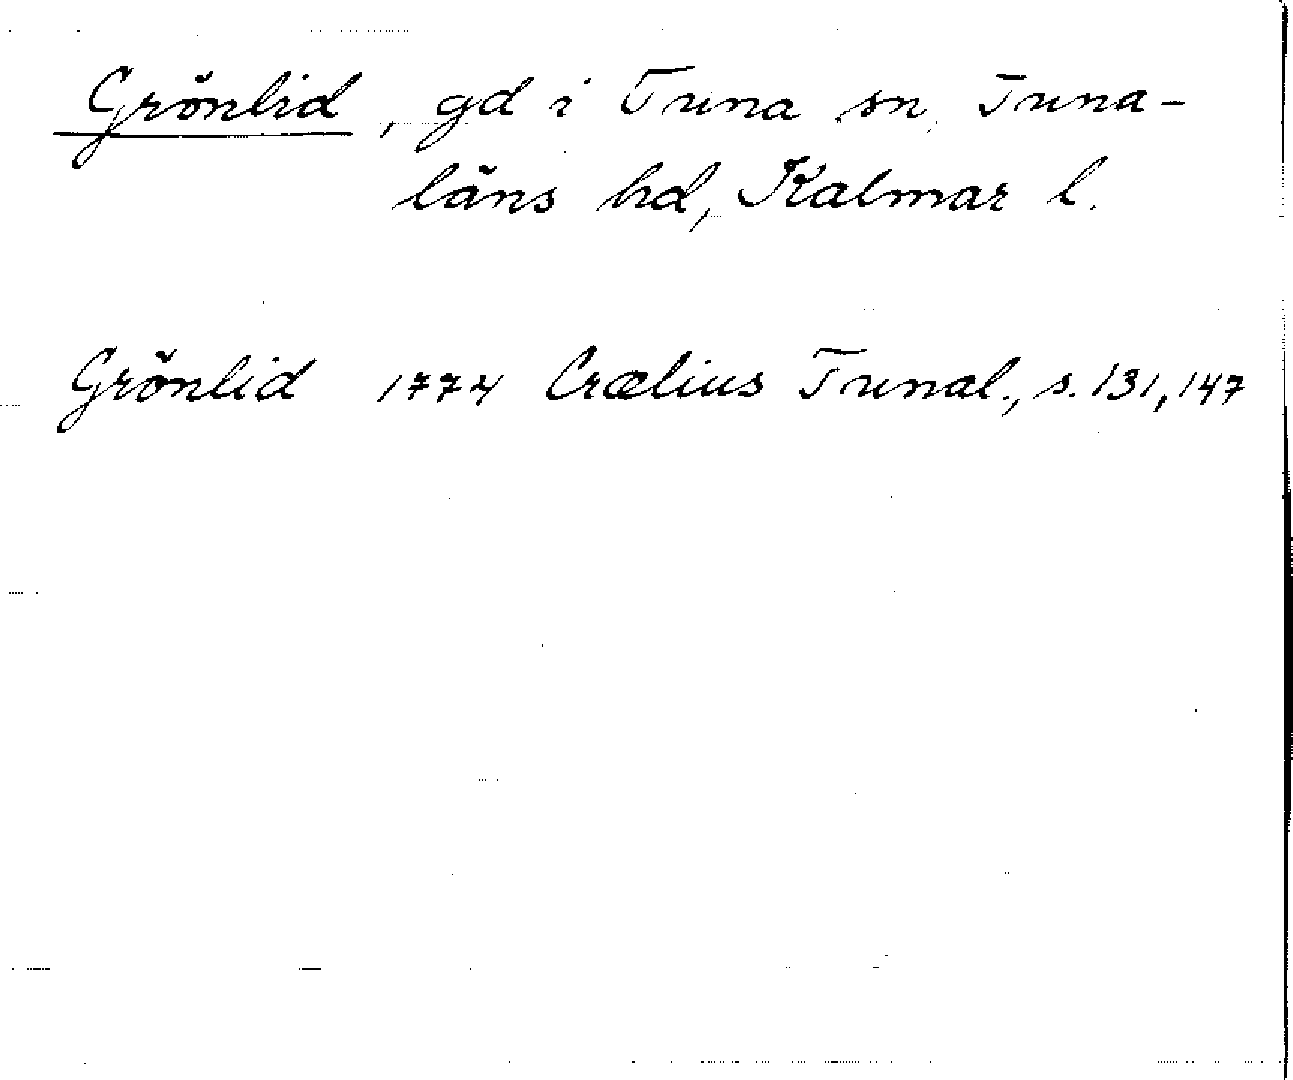 Grönlid, gd i Tuna sn, Tuna-
läns hd, Kalmar l.
Grönlid 1774 Craelius Tunal., s. 131, 147